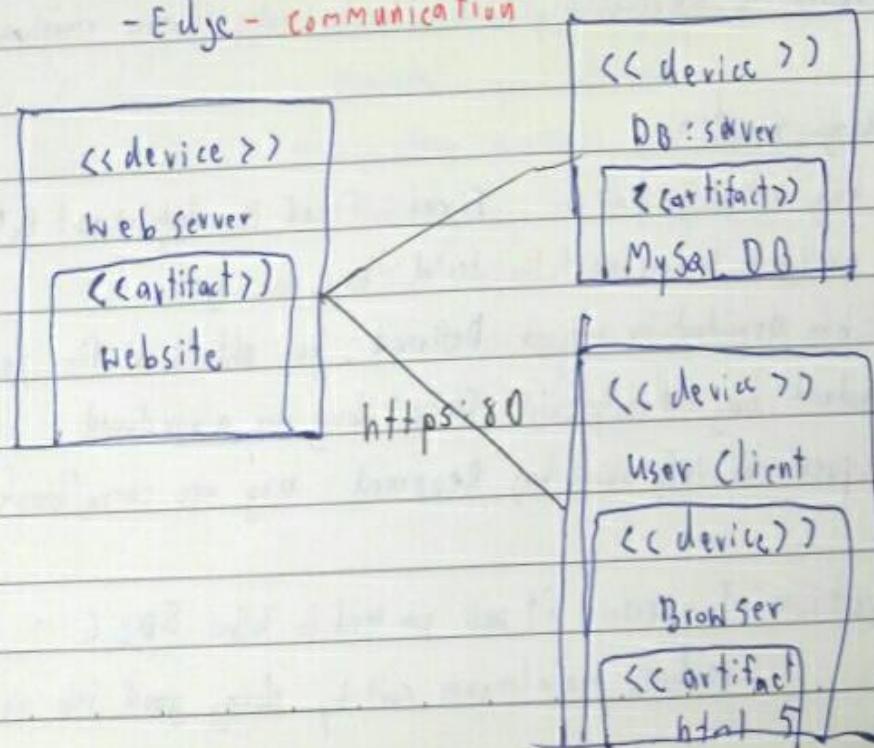 - Edge - communication
<<device>>
web server
<<artifact>>
website
https:80
<<device>>
DB : server
<<artifact>>
MySQL DB
<<device>>
User Client
<<device>>
Browser
<<artifact
html 5